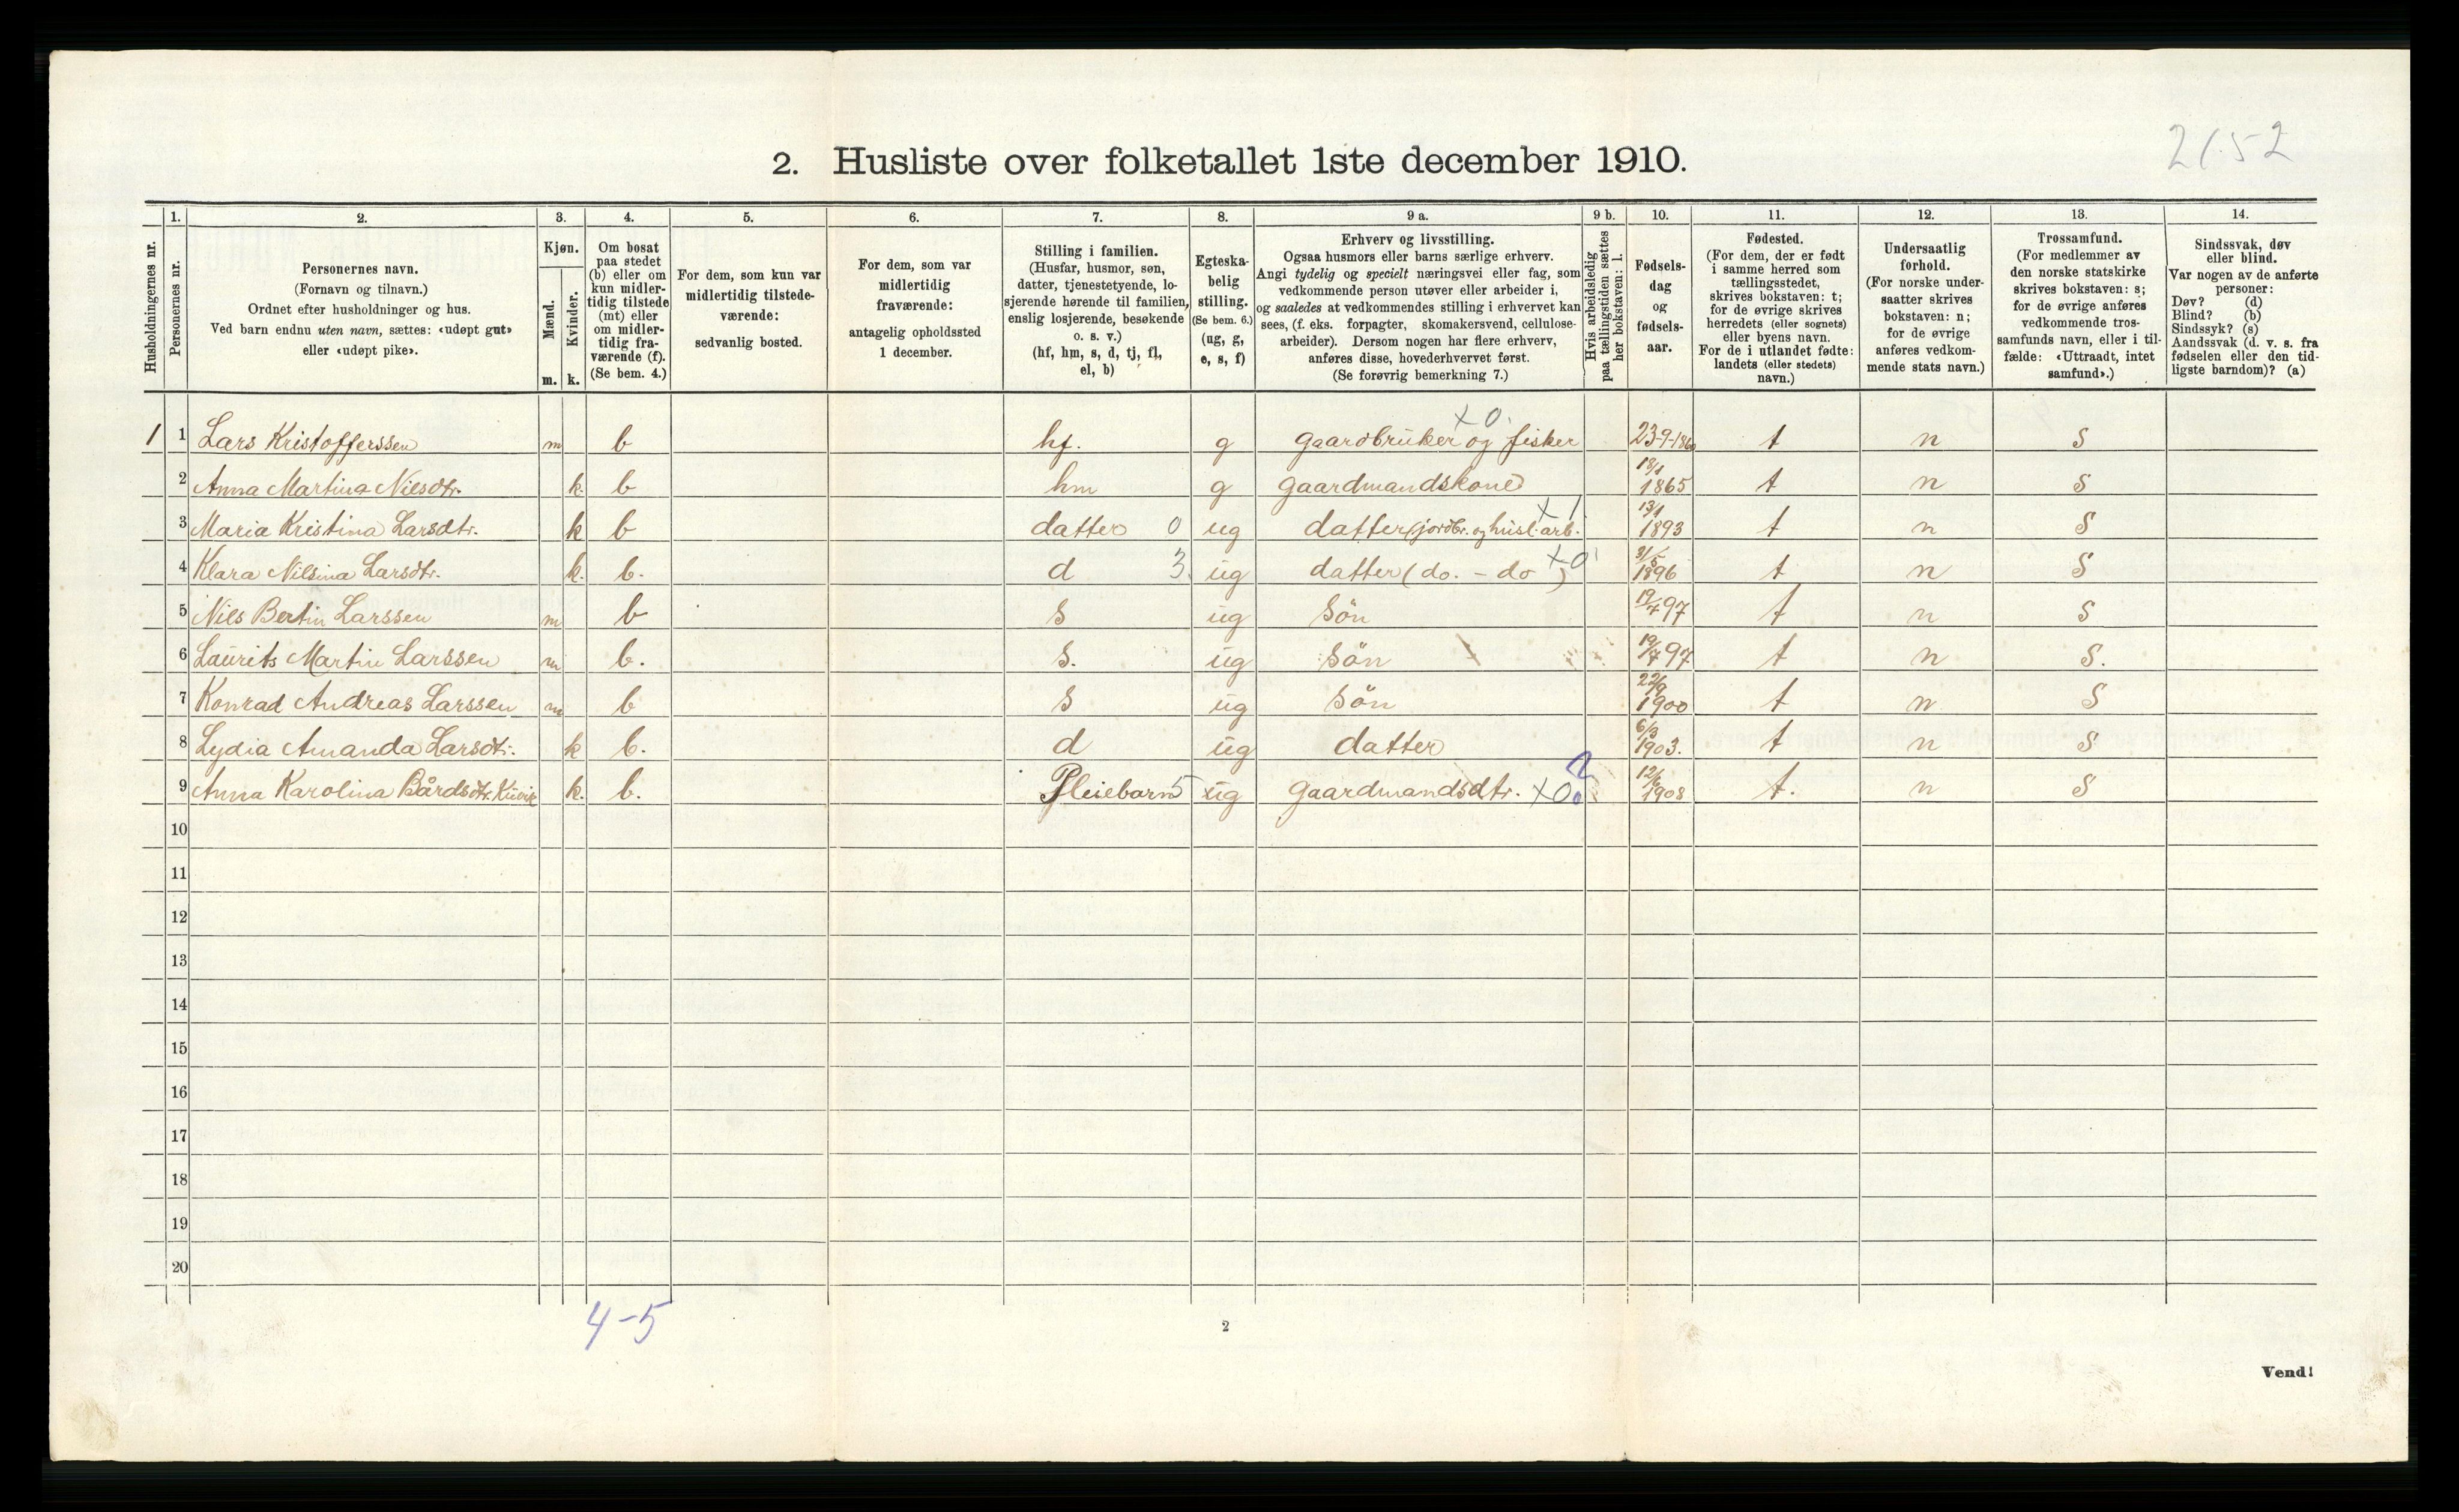 2152
2. Husliste over folketallet 1ste december 1910.
Husholdningernes nr.
1.
Personernes nr.
2.
Personernes navn.
(Fornavn og tilnavn.)
Ordnet efter husholdninger og hus.
Ved barn endnu uten navn, sættes: «udøpt gut»
eller «udøpt pike».
3.
Kjøn.
Mænd.
Kvinder.
m. k.
4.
Om bosat
paa stedet
(b) eller om
kun midler-
tidig tilstede
(mt) eller
om midler-
tidig fra-
værende (f).
(Se bem. 4.)
5.
For dem, som kun var
midlertidig tilstede-
værende:
sedvanlig bosted.
6.
For dem, som var
midlertidig
fraværende:
antagelig opholdssted
1 december.
7.
Stilling i familien.
(Husfar, husmor, søn,
datter, tjenestetyende, lo-
sjerende hørende til familien,
enslig losjerende, besøkende
o. s. v.)
(hf, hm, s, d, tj, fl,
el, b)
8.
Egteska-
belig
stilling.
(Se bem. 6.)
(ug, g,
e, s, f)
9 a.
Erhverv og livsstilling.
Ogsaa husmors eller barns særlige erhverv.
Angi tydelig og specielt næringsvei eller fag, som
vedkommende person utøver eller arbeider i,
og saaledes at vedkommendes stilling i erhvervet kan
sees, (f. eks. forpagter, skomakersvend, cellulose-
arbeider). Dersom nogen har flere erhverv,
anføres disse, hovederhvervet først.
(Se forøvrig bemerkning 7.)
9 b.
Hvis arbeidsledig
paa tællingstiden sættes
her bokstaven: l.
10.
Fødsels-
dag
og
fødsels-
aar.
11.
Fødested.
(For dem, der er født
i samme herred som
tællingsstedet,
skrives bokstaven: t;
for de øvrige skrives
herredets (eller sognets)
eller byens navn.
For de i utlandet fødte:
landets (eller stedets)
navn.)
12.
Undersaatlig
forhold.
(For norske under-
saatter skrives
bokstaven: n;
for de øvrige
anføres vedkom-
mende stats navn.)
13.
Trossamfund.
(For medlemmer av
den norske statskirke
skrives bokstaven: s;
for de øvrige anføres
vedkommende tros-
samfunds navn, eller i til-
fælde: «Uttraadt, intet
samfund».)
14.
Sindssvak, døv
eller blind.
Var nogen av de anførte
personer:
Døv? (d)
Blind? (b)
Sindssyk? (s)
Aandssvak (d. v. s. fra
fødselen eller den tid-
ligste barndom)? (a)
1 1 Lars Kristofferssen m b hf. g gaardbruker og fisker x0. 23-9-1860 t n s
2 Anna Martina Nilsdtr. k. b hm g gaardmandskone 18/1 1865 t n s
3 Maria Kristina Larsdtr. k b datter 0 ug datter (jordbr. og husl. arb. x1 13/1 1893 t n s
4 Klara Nilsina Larsdtr. k. b. d 3. ug datter (do. - do ) x0 31/5 1896 t n s
5 Nils Bertin Larssen m b s ug Sön 19/7 97 t n s
6 Laurits Martin Larssen m b. s. ug Sön 19/7 97 t n s.
7 Konrad Andreas Larssen m b s ug Sön 22/9 1900 t n s
8 Lydia Amanda Larsdtr. k b. d ug datter 6/3 1903. t n s
9 Anna Karolina Bårdsdtr. Kuvik k. b. Pleiebarn 5 ug gaardmandsdtr. x0 ? 12/6 1908 t. n s
10
11
12
13
14
15
16
17
18
19
20
4-5
2
Vend!